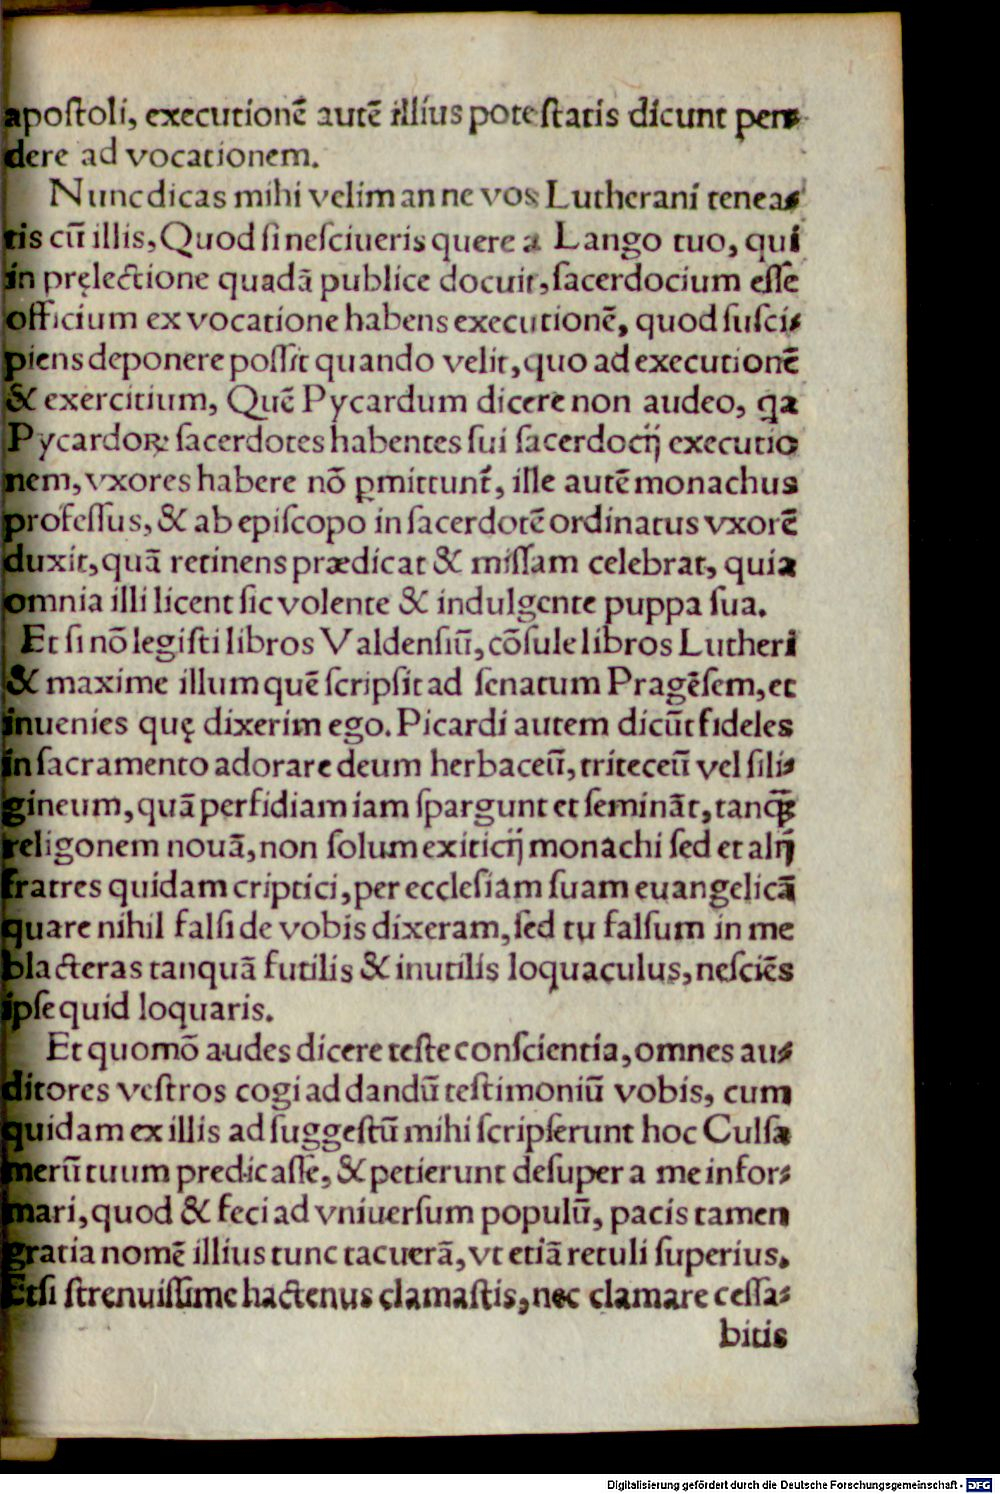 apoſtoli, executionē autē illius poteſtatis dicunt pen⸗
dere ad vocationem.
Nunc dicas mihi velim an ne vos Lutherani tenea⸗
tis cū illis, Quod ſi neſciueris quere a Lango tuo, qui
in pręlectione quadā publice docuit, ſacerdocium eſſe
officium ex vocatione habens executionē, quod ſuſci⸗
piens deponere poſſit quando velit, quo ad executionē
& exercitium, Quē Pycardum dicere non audeo, qa
Pycardoꝝ ſacerdotes habentes ſui ſacerdocij executio
nem, vxores habere nō ꝑmittunt, ille autē monachus
profeſſus, & ab epiſcopo in ſacerdotē ordinatus vxorē
duxit, quā retinens prædicat & miſſam celebrat, quia
omnia illi licent ſic volente & indulgente puppa ſua.
Et ſi nō legiſti libros Valdenſiū, cōſule libros Lutheri
& maxime illum quē ſcripſit ad ſenatum Pragēſem, et
inuenies quę dixerim ego. Picardi autem dicūt fideles
in ſacramento adorare deum herbaceū, triteceū vel ſili⸗
gineum, quā perfidiam iam ſpargunt et ſemināt, tanq̃ȝ
religonem nouā, non ſolum exiticij monachi ſed et alij
fratres quidam criptici, per eccleſiam ſuam euangelicā
quare nihil falſi de vobis dixeram, ſed tu falſum in me
blacteras tanquā futilis & inutilis loquaculus, neſciēs
ipſe quid loquaris.
Et quomō audes dicere teſte conſcientia, omnes au⸗
ditores veſtros cogi ad dandū teſtimoniū vobis, cum
quidam ex illis ad ſuggeſtū mihi ſcripſerunt hoc Culſa
merū tuum predicaſſe, & petierunt deſuper a me infor⸗
mari, quod & feci ad vniuerſum populū, pacis tamen
gratia nomē illius tunc tacuerā, vt etiā retuli ſuperius.
Etſi ſtrenuiſſime hactenus clamaſtis, nec clamare ceſſa⸗
bitis
Digitalisierung gefördert durch die Deutsche Forschungsgemeinschaft - DFG